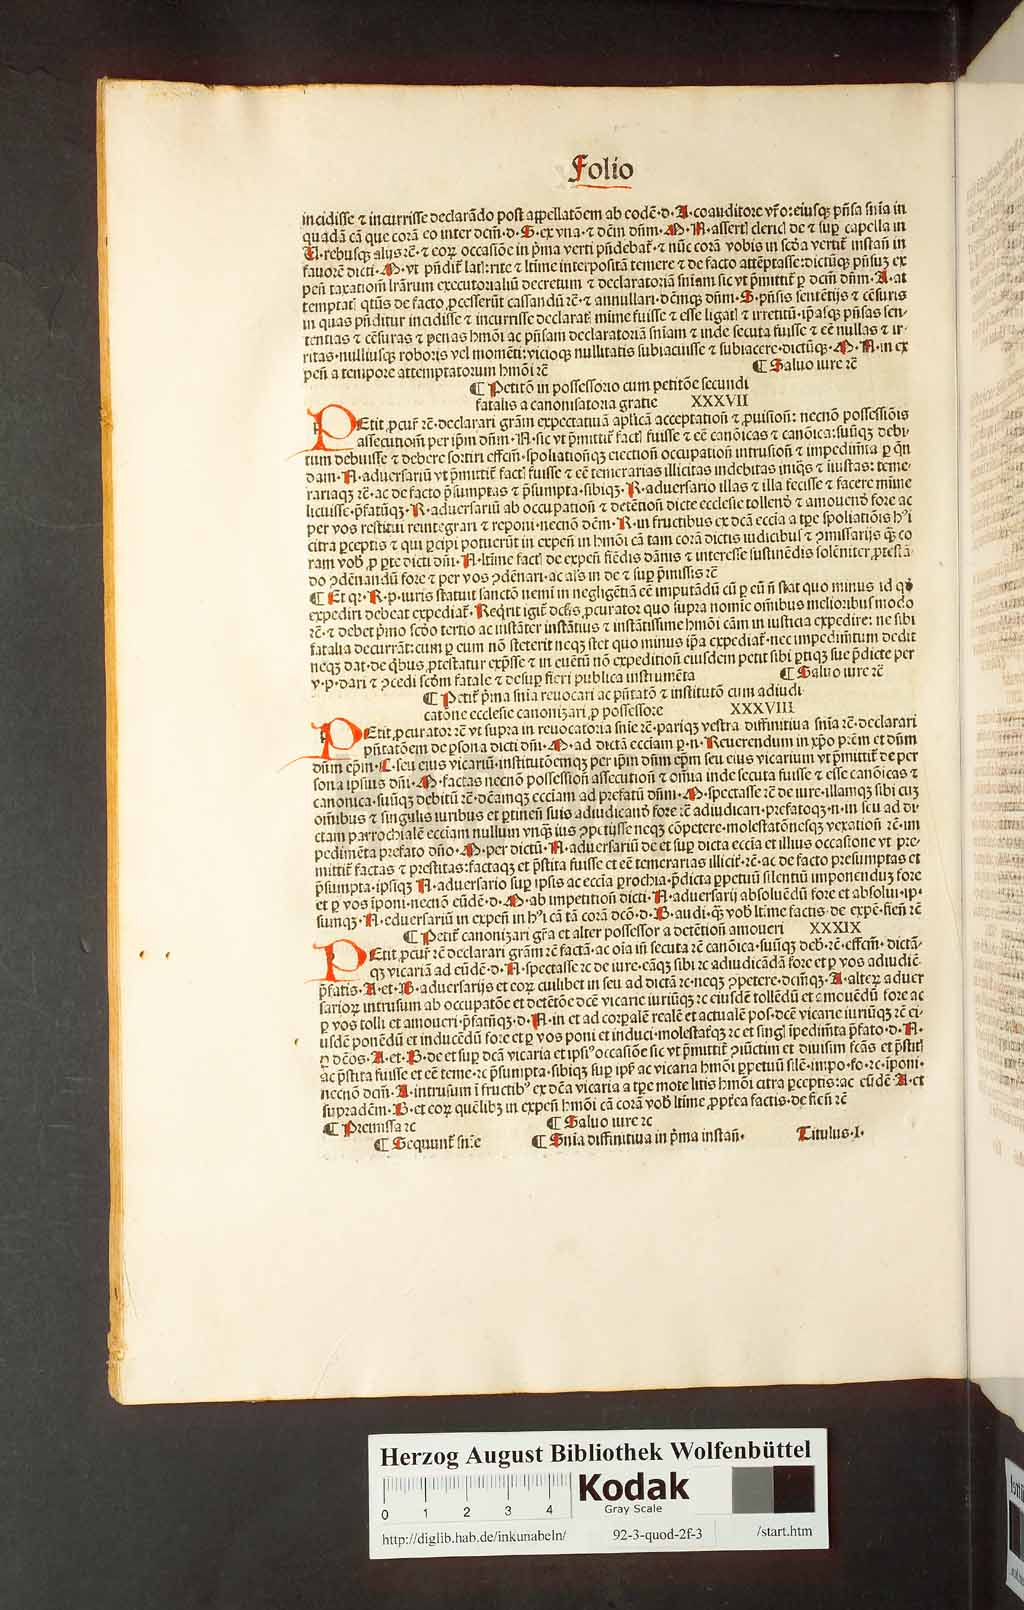 Folio
incidisse ⁊ incurrisse declarādo post appellatōem ab codē·d·A·coauditore vr̄o:eiusqꝫ pn̄sa sn̄ia in
quadā cā que corā eo inter dcm̄·d·S·ex vna·⁊ dc̄m dn̄m·M·N·asserti clerici de ⁊ suꝑ capella in
N·rebusqꝫ alijs rc̄·⁊ eoꝝ occasiōe in p̄ma verti pn̄debat̄·⁊ nūc corā vobis in scd̄a vertit̄ instan̄ in
fauorē dicti·M·vt pn̄dit̄ lati:rite ⁊ ltīme interpositā temere ⁊ de facto attēptasse:dictūqꝫ pn̄suꝫ ex
pen̄ taxation̄ lrārum executorialiū decretum ⁊ declaratoriā sn̄iam sic vt p̄mittit̄ ꝑ dcm̄ dn̄m·A·at
temptati qtūs de facto ꝓcesserūt cassandū rc̄·⁊ annullari·dc̄mqꝫ dn̄m·S·pn̄sis sentētijs ⁊ cēsuris
in quas pn̄ditur incidisse ⁊ incurrisse declarati mime fuisse ⁊ esse ligati ⁊ irretitū·ip̄asqꝫ pn̄sas sen-
tentias ⁊ cēsuras ⁊ penas hmōi ac pn̄sam declaratoriā sn̄iam ⁊ inde secuta fuisse ⁊ eē nullas ⁊ ir-
ritas·nulliusqꝫ roboris vel momēti:vicioqꝫ nullitatis subiacuisse ⁊ subiacere·dictūqꝫ·M·N·in ex
pen̄ a tempore attemptatorum hmōi rc̄ ¶ Saluo iure rc̄
¶ Petitō in possessorio cum petitōe secundi
fatalis a canonisatoria gratie XXXVII
PEtit ꝓcur̄ rc̄·declarari grām expectatiuā aplīcā acceptation̄ ⁊ ꝓuision̄: necnō possessiōis
assecutiom̄ per ip̄m dn̄m·N·sic vt p̄mittit̄ facti fuisse ⁊ eē canōicas ⁊ canōica:suūqꝫ debi-
tum debuisse ⁊ debere sortiri effcm̄·spoliationqꝫ eiection̄ occupation̄ intrusion̄ ⁊ impedim̄ta ꝑ qn̄
dam·N·aduersariū vt p̄mittit̄ facti fuisse ⁊ eē temerarias illicitas indebitas iniqs̄ ⁊ iiustas: teme-
rariaqꝫ rc̄·ac de facto p̄sumptas ⁊ p̄sumpta·sibiqꝫ·R·aduersario illas ⁊ illa fecisse ⁊ facere mime
licuisse·p̄fatūqꝫ·R·aduersariū ab occupation̄ ⁊ detētion̄ dicte ecclesie tollendo ⁊ amouendo fore ac
per vos restitui reintegrari ⁊ reponi·necnō dc̄m·R·in fructibus ex dc̄a ecc̄ia a tꝑe spoliatiōis hꝰi
citra ꝑceptis ⁊ qui ꝑcipi potuerūt in expen̄ in hmōi cā tam corā dictis iudicibus ⁊ ꝯmissarijs qꝫ co
ram vob̄ ꝓ ꝑte dicti dn̄i·N·ltīme facti de expen̄ fiēdis dānis ⁊ interesse sustinēdis solēniter ꝓtestā
do ꝯdēnandū fore ⁊ per vos ꝯdēnari·ac alīs in de ⁊ suꝑ p̄missis rc̄
¶ Et qꝛ·R·p·iuris statuit sanctō nemī in negligētiā eē imputādū cū ꝑ eū n̄ stat quo minus id qō
expediri debeat expediat̄·Reqrit igit̄ dcūs ꝓcurator quo supra nomīe om̄ibus melioribus modo
rc̄·⁊ debet p̄mo scdō tertio ac instāter instātius ⁊ instātissime hmōi cām in iusticia expedire: ne sibi
fatalia decurrāt:cum ꝑ eum nō steterit neqꝫ stet quo minus ip̄a expediat̄·nec impedim̄tum dedit
neqꝫ dat·de qb̄us ꝓtestatur exp̄sse ⁊ in euētū nō expedition̄ eiusdem petit sibi ꝑtiqꝫ sue p̄dicte per
v·p·dari ⁊ ꝯcedi scdm̄ fatale ⁊ desuꝑ fieri publica instrumēta ¶ Saluo iure rc̄
¶ Petit̄ p̄ma sn̄ia reuocari ac pn̄tatō ⁊ institutō cum adiudi
catōne ecclesie canonizari ꝓ possessore XXXVIII
PEtit ꝓcurator rc̄ vt supra in reuocatoria sn̄ie rc̄·pariqꝫ vestra diffinitiua sn̄ia rc̄·declarari
pn̄tatōem de ꝑsona dicti dn̄i·M·ad dictā ecciam ꝑ·n·Reuerendum in xp̄o prēm et dn̄m
dn̄m ep̄m·C·seu eius vicariū·institutōemqꝫ per ip̄m dn̄m ep̄m seu eius vicarium vt p̄mittit̄ de per
sona ipsius dn̄i·M·factas necnō possession̄ assecution̄ ⁊ om̄ia inde secuta fuisse ⁊ esse canōicas ⁊
canonica·suūqꝫ debitū rc̄·dc̄amqꝫ ecciam ad prefatū dn̄m·M·spectasse rc̄ de iure·illamqꝫ sibi cuꝫ
om̄ibus ⁊ singulis iuribus et ꝑtinen̄ suis adiudicandō fore rc̄ adiudicari·prefatoqꝫ·n·in seu ad di
ctam parrochialē ecciam nullum vnqꝫ ius ꝯpetijsse neqꝫ cōpetere·molestatōnesqꝫ vexation̄ rc̄·im
pedimēta prefato dn̄o·M·per dictū·N·aduersariū de et suꝑ dicta eccia et illius occasione vt pre-
mittit̄ factas ⁊ prestitas:factaqꝫ et p̄stita fuisse et eē temerarias illicit̄·rc̄·ac de facto presumptas et
p̄sumpta·ipsiqꝫ N·aduersario suꝑ ipsis ac eccia ꝑrochia·p̄dicta ꝑpetuū silentiū imponenduꝫ fore
et ꝑ vos īponi·necnō eūdē·d·M·ab impetition̄ dicti·N·aduersarij absoluēdū fore et absolui·ip-
sumqꝫ·N·eduersariū in expen̄ in hꝰi cā tā corā dc̄o·d·B·audi·qꝫ vob̄ ltīme factis·de expē·fien̄ rc̄
¶ Petit̄ canonizari gr̄a et alter possessor a detētion̄ amoueri XXXIX
PEtit ꝓcur̄ rc̄ declarari grām rc̄ factā·ac oīa in̄ secuta rc̄ canōica·suūqꝫ deb̄·rc̄·effcm̄·dictā-
qꝫ vicariā ad eūdē·d·N·spectasse rc de iure·eāqꝫ sibi rc adiudicādā fore et ꝑ vos adiudic̄
p̄fatis·A·et·B·aduersarijs et eoꝝ cuilibet in seu ad dictā rc·neqꝫ ꝯpetere·dcm̄qꝫ·A·alteꝝ aduer
sarioꝝ intrusum ab occupatōe et detētōe dcē vicarie iuriūqꝫ rc eiusdē tollēdū et amouēdū fore ac
ꝑ vos tolli et amoueri·p̄fatūqꝫ·d·N·in et ad corꝑalē realē et actualē pos·dcē vicarie iuriūqꝫ rc̄ ei-
usdē ponēdū et inducēdū fore et ꝑ vos poni et induci·molestat̄qꝫ rc et singl̄ īpedim̄ta p̄fato·d·N·
ꝑ dc̄os·A·et·B·de et suꝑ dc̄ā vicaria et ipsiꝰ occasiōe sic vt p̄mittit̄ ꝯiūctim et diuisim fcās et p̄stit̄
ac p̄stita fuisse et eē teme·rc p̄sumpta·sibiqꝫ suꝑ ip̄s ac vicaria hmōi ꝑpetuū silē·impo·fo·rc·īponi·
necnō dcm̄·A·intrusum ī fructibꝰ ex dc̄a vicaria a tꝑe mote litis hmōi citra ꝑceptis:ac eūdē·A·et
supradēm·B·et eoꝝ quēlibꝫ in expen̄ hmōi cā corā vob̄ ltīme ꝓptr̄ea factis·de fien̄ rc̄
¶ Premissa rc ¶ Saluo iure rc
¶ Sequunt̄ sn̄ie ¶ Sn̄ia diffinitiua in p̄ma instan̄· Titulus·I·
Herzog August Bibliothek Wolfenbüttel
0 1 2 3 4
Kodak
Gray Scale
http://diglib.hab.de/inkunabeln/ 92-3-quod-2f-3 /start.htm